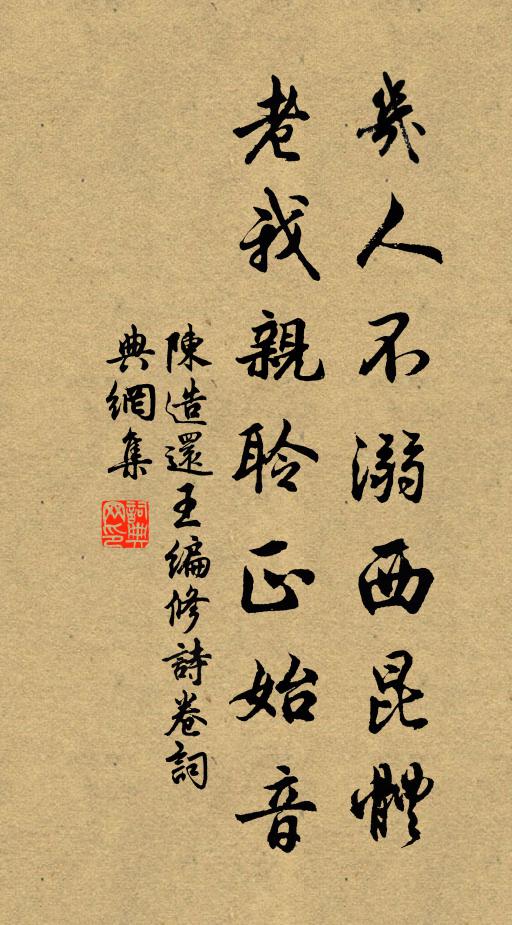 幾人不溺西昆體
老我親聆正始音
陳造還王編修詩卷詞
典網集
詞典網印